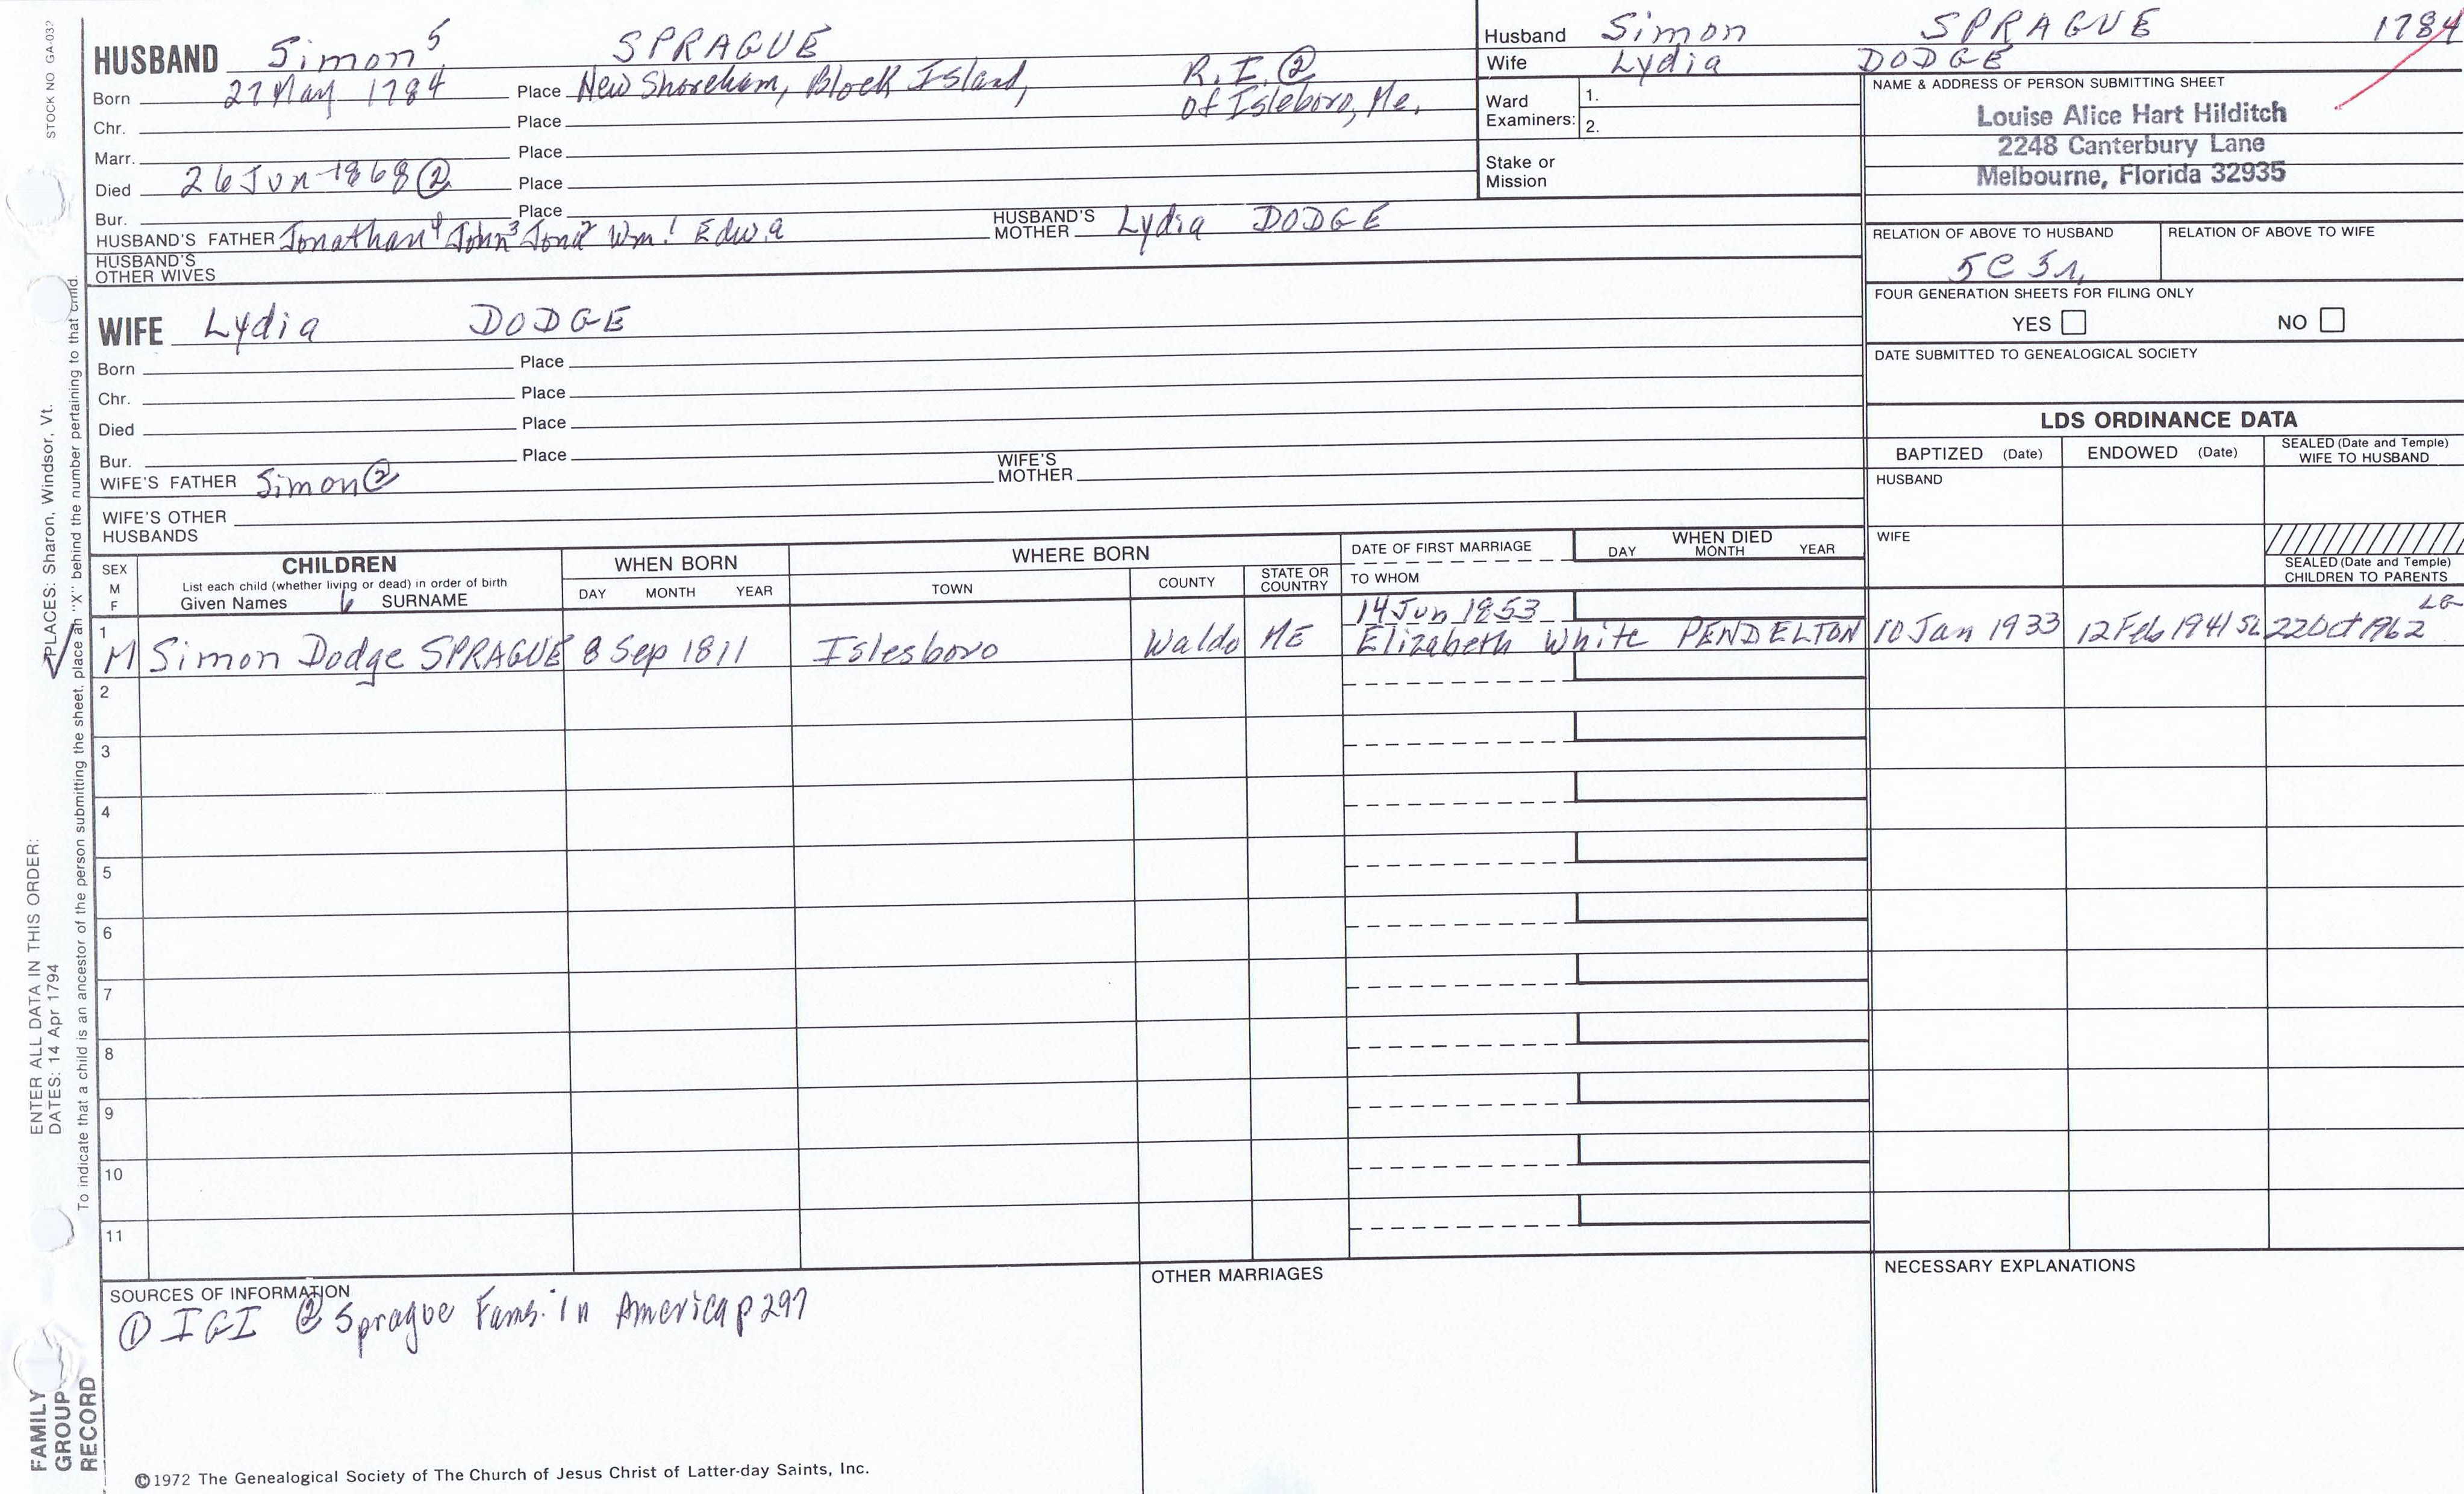 STOCK NO GA-032
HUSBAND Simon⁵ SPRAGUE
Born 27 May 1784 Place New Shoreham, Block Island, R.I. ②
Chr. Place of Isleboro, Me.
Marr. Place
Died 26 Jun 1868 ② Place
Bur. Place
HUSBAND'S FATHER Jonathan⁴ John³ Jona² Wm.¹ Edw.a
HUSBAND'S MOTHER Lydia DODGE
HUSBAND'S OTHER WIVES
Husband Simon SPRAGUE 1784
Wife Lydia DODGE
Ward Examiners: 1.
2.
Stake or Mission
NAME & ADDRESS OF PERSON SUBMITTING SHEET
Louise Alice Hart Hilditch
2248 Canterbury Lane
Melbourne, Florida 32935
RELATION OF ABOVE TO HUSBAND RELATION OF ABOVE TO WIFE
5C 3r,
FOUR GENERATION SHEETS FOR FILING ONLY
YES NO
DATE SUBMITTED TO GENEALOGICAL SOCIETY
WIFE Lydia DODGE
Born Place
Chr. Place
Died Place
Bur. Place
WIFE'S FATHER Simon ②
WIFE'S MOTHER
WIFE'S OTHER HUSBANDS
LDS ORDINANCE DATA
BAPTIZED (Date) ENDOWED (Date) SEALED (Date and Temple) WIFE TO HUSBAND
HUSBAND
WIFE
SEALED (Date and Temple) CHILDREN TO PARENTS
SEX M F
CHILDREN
List each child (whether living or dead) in order of birth
Given Names 6 SURNAME
WHEN BORN
DAY MONTH YEAR
WHERE BORN
TOWN COUNTY STATE OR COUNTRY
DATE OF FIRST MARRIAGE
TO WHOM
WHEN DIED
DAY MONTH YEAR
14 Jun 1853
1 M Simon Dodge SPRAGUE 8 Sep 1811 Islesboro Waldo ME Elizabeth White PENDELTON 10 Jan 1933 12 Feb 1941 SL 22 Oct 1962 LG
2
3
4
5
6
7
8
9
10
11
SOURCES OF INFORMATION
① IGI ② Sprague Fams. in America p 297
OTHER MARRIAGES
NECESSARY EXPLANATIONS
©1972 The Genealogical Society of The Church of Jesus Christ of Latter-day Saints, Inc.
ENTER ALL DATA IN THIS ORDER:
DATES: 14 Apr 1794
PLACES: Sharon, Windsor, Vt.
To indicate that a child is an ancestor of the person submitting the sheet, place an "X" behind the number pertaining to that child.
FAMILY
GROUP
RECORD